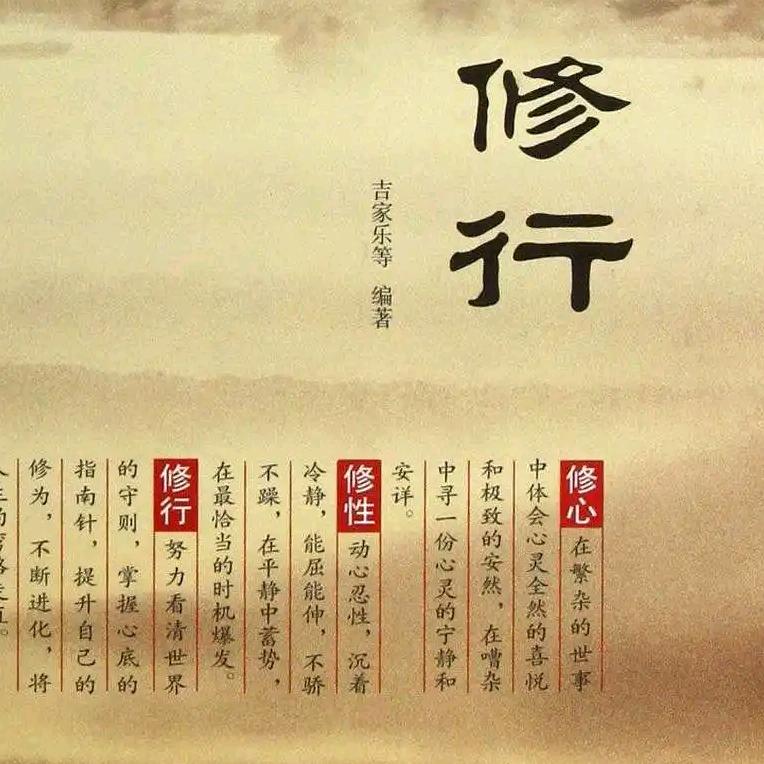 修行
吉家乐等 编著
修心 在繁杂的世事
中体会心灵全然的喜悦
和极致的安然，在嘈杂
中寻一份心灵的宁静和
安详。
修性 动心忍性，沉着
冷静，能屈能伸，不骄
不躁，在平静中蓄势，
在最恰当的时机爆发。
修行 努力看清世界
的守则，掌握心底的
指南针，提升自己的
修为，不断进化，将